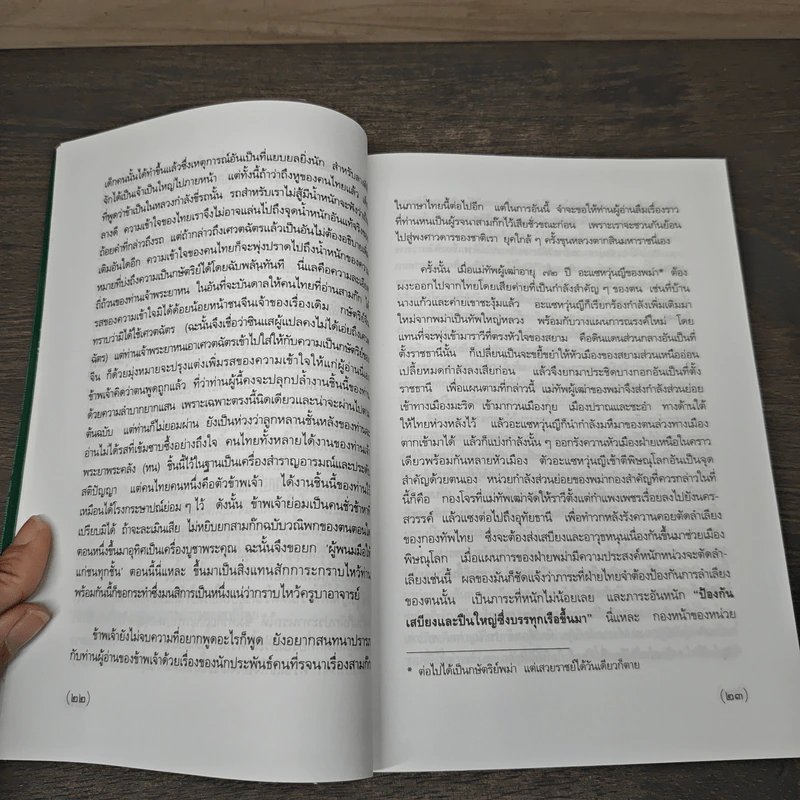 เด็กคนนั้นได้ทำขึ้นแล้วซึ่งเหตุการณ์อันเป็นที่แยบยลยิ่งนัก สำหรับ
จักได้เป็นเจ้าเป็นใหญ่ไปภายหน้า แต่ทั้งนี้ถ้าว่าถึงหูของคนไทยแล้ว
ที่พูดว่าช้าเป็นในหลวงกำลังขี่รถนั้น รถสำหรับเราไม่สู้มีน้ำหนักจะฟัง
ลางดี ความเข้าใจของไทยเราจึงไม่อาจแล่นไปถึงจุดน้ำหนักอันแท้จริง
ถ้อยคำที่กล่าวถึงรถ แต่ถ้ากล่าวถึงเศวตฉัตรแล้วเป็นอันไม่ต้องอธิบาย
เติมอันใดอีก ความเข้าใจของคนไทยก็จะพุ่งปราดไปถึงน้ำหนักของความ
หมายที่บ่งถึงความเป็นกษัตริย์ได้โดยฉับพลันทันที นี่แลคือความละเอียด
ถี่ถ้วนของท่านเจ้าพระยาหน ในอันที่จะบันดาลให้คนไทยที่อ่านสามก๊ก
รสของความเข้าใจมิได้ด้อยน้อยหน้าชนจีนเจ้าของเรื่องเดิม กษัตริย์จีน
ทราบว่ามิได้ใช้เศวตฉัตร (ฉะนั้นจึงเชื่อว่าซินแสผู้แปลคงไม่ได้เอ่ยถึงเศวต
ฉัตร) แต่ท่านเจ้าพระยาหนเอาเศวตฉัตรเข้าไปใส่ให้กับความเป็นกษัตริย์ของ
จีน ก็ด้วยมุ่งหมายจะปรุงแต่งเพิ่มรสของความเข้าใจให้แก่ผู้อ่านนี่แล
ข้าพเจ้าคิดว่าตนพูดถูกแล้ว ที่ว่าท่านผู้นี้คงจะปลุกปล้ำงานชิ้นนี้ของท่าน
ด้วยความลำบากยากแสน เพราะเฉพาะตรงนี้นิดเดียวและน่าจะผ่านไปตาม
ต้นฉบับ แต่ท่านก็ไม่ยอมผ่าน ยังเป็นห่วงว่าลูกหลานชั้นหลังของท่านจะ
อ่านไม่ได้รสที่เข้มซาบซึ้งอย่างถึงใจ คนไทยทั้งหลายได้งานของท่านเจ้า
พระยาพระคลัง (หน) ชิ้นนี้ไว้ในฐานะเป็นเครื่องสำราญอารมณ์และประดับ
สติปัญญา แต่คนไทยคนหนึ่งคือตัวข้าพเจ้า ได้งานชิ้นนี้ของท่านไว้
เหมือนได้โรงกระษาปณ์ย่อม ๆ ไว้ ดังนั้น ข้าพเจ้าย่อมเป็นคนชั่วช้าหา
เปรียบมิได้ ถ้าจะละเมินเสีย ไม่หยิบยกสามก๊กฉบับวณิพกของตนตอนใด
ตอนหนึ่งขึ้นมาอุทิศเป็นเครื่องบูชาพระคุณ ฉะนั้นจึงขอยก 'ผู้พนมมือให้
แก่ชนทุกชั้น' ตอนนี้นี่แหละ ขึ้นมาเป็นสิ่งแทนสักการะกราบไหว้ท่าน
พร้อมกันนี้ก็ขอกระทำซึ่งมนสิการเป็นหนึ่งแน่ว่ากราบไหว้ครูบาอาจารย์
ข้าพเจ้ายังไม่จบความที่อยากพูดอะไรก็พูด ยังอยากสนทนาปราศรัย
กับท่านผู้อ่านของข้าพเจ้าด้วยเรื่องของนักประพันธ์คนที่รจนาเรื่องสามก๊ก
(๒๒)
ในภาษาไทยนี้ต่อไปอีก แต่ในการอันนี้ จำจะขอให้ท่านผู้อ่านลืมเรื่องราว
ที่ท่านหนเป็นผู้รจนาสามก๊กไว้เสียชั่วขณะก่อน เพราะเราจะชวนกันย้อน
ไปสู่พงศาวดารของชาติเรา ยุคใกล้ ๆ ครั้งขุนหลวงตากสินมหาราชนี่เอง
ครั้งนั้น เมื่อแม่ทัพผู้เฒ่าอายุ ๗๒ ปี อะแซหวุ่นญีของพม่า* ต้อง
ผงะออกไปจากไทยโดยเสียค่ายที่เป็นกำลังสำคัญ ๆ ของตน เช่นที่บ้าน
นางแก้วและค่ายเขาชะงุ้มแล้ว อะแซหวุ่นญีก็เรียกร้องกำลังเพิ่มเติมมา
ใหม่จากพม่าเป็นทัพใหญ่หลวง พร้อมกับวางแผนการณรงค์ใหม่ โดย
แทนที่จะพุ่งเข้ามาราวีที่ตรงหัวใจของสยาม คือดินแดนส่วนกลางอันเป็นที่
ตั้งราชธานีนั้น ก็เปลี่ยนเป็นจะขยี้ขยำให้หัวเมืองของสยามส่วนเหนืออ่อน
เปลี้ยหมดกำลังลงเสียก่อน แล้วจึงยกมาประชิดบางกอกอันเป็นที่ตั้ง
ราชธานี เพื่อแผนตามที่กล่าวนี้ แม่ทัพผู้เฒ่าของพม่าจึงส่งกำลังส่วนย่อย
เข้าทางเมืองมะริด เข้ามากวนเมืองกุย เมืองปราณและชะอำ ทางด้านใต้
ให้ไทยห่วงหลังไว้ แล้วอะแซหวุ่นญีก็นำกำลังมหึมาของตนล่วงทางเมือง
ตากเข้ามาได้ แล้วก็แบ่งกำลังนั้น ๆ ออกรังควานหัวเมืองฝ่ายเหนือในคราว
เดียวพร้อมกันหลายหัวเมือง ตัวอะแซหวุ่นญีเข้าตีพิษณุโลกอันเป็นจุด
สำคัญด้วยตนเอง หน่วยกำลังส่วนย่อยของพม่ากองสำคัญที่ควรกล่าวในที่
นี้ก็คือ กองโจรที่แม่ทัพเฒ่าจัดให้ราวีตั้งแต่กำแพงเพชรเรื่อยลงไปยังนคร-
สวรรค์ แล้วแซงต่อไปถึงอุทัยธานี เพื่อทำวกหลังรังควานคอยตัดลำเลียง
ของกองทัพไทย ซึ่งจะต้องส่งเสบียงและอาวุธหนุนเนื่องกันขึ้นมาช่วยเมือง
พิษณุโลก เมื่อแผนการของฝ่ายพม่ามีความประสงค์หนักหน่วงจะตัดลำ-
เลียงเช่นนี้ ผลของมันก็ชัดแจ้งว่าภาระที่ฝ่ายไทยจำต้องป้องกันการลำเลียง
ของตนนั้น เป็นภาระที่หนักไม่น้อยเลย และภาระอันหนัก "ป้องกัน
เสบียงและปืนใหญ่ซึ่งบรรทุกเรือขึ้นมา" นี่แหละ กองหน้าของหน่วย
* ต่อไปได้เป็นกษัตริย์พม่า แต่เสวยราชย์ได้วันเดียวก็ตาย
(๒๓)